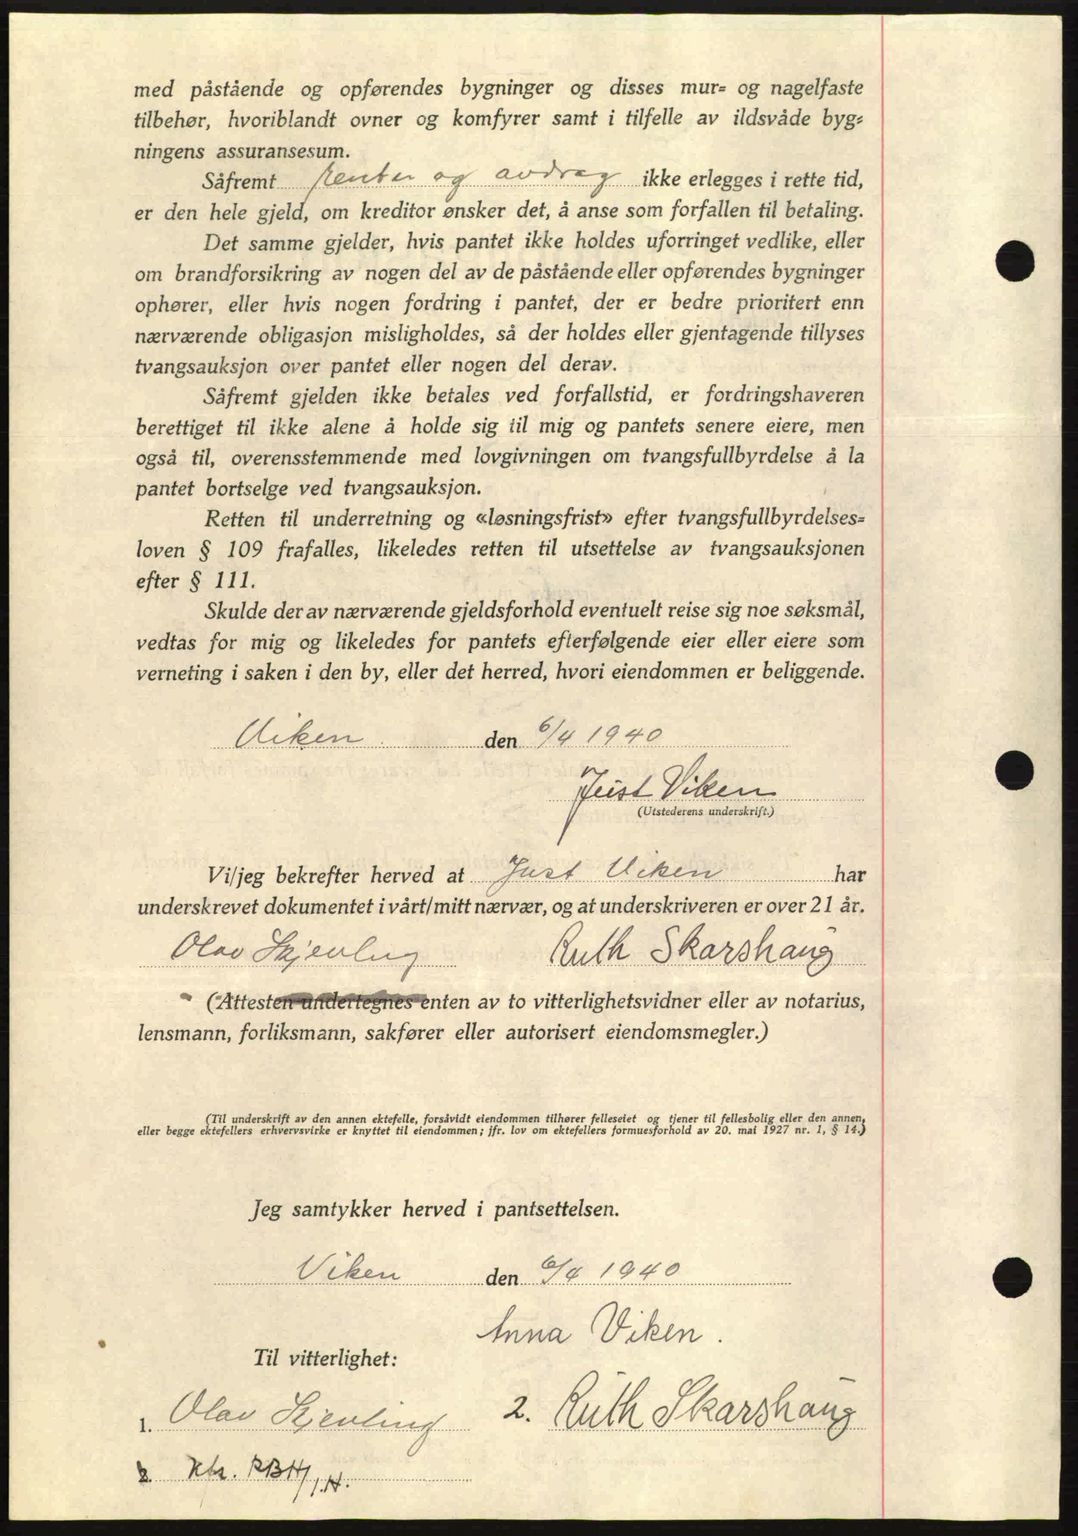 med påstående og opførendes bygninger og disses mur= og nagelfaste
tilbehør, hvoriblandt ovner og komfyrer samt i tilfelle av ildsvåde byg=
ningens assuransesum.
Såfremt renter og avdrag ikke erlegges i rette tid,
er den hele gjeld, om kreditor ønsker det, å anse som forfallen til betaling.
Det samme gjelder, hvis pantet ikke holdes uforringet vedlike, eller
om brandforsikring av nogen del av de påstående eller opførendes bygninger
ophører, eller hvis nogen fordring i pantet, der er bedre prioritert enn
nærværende obligasjon misligholdes, så der holdes eller gjentagende tillyses
tvangsauksjon over pantet eller nogen del derav.
Såfremt gjelden ikke betales ved forfallstid, er fordringshaveren
berettiget til ikke alene å holde sig til mig og pantets senere eiere, men
også til, overensstemmende med lovgivningen om tvangsfullbyrdelse å la
pantet bortselge ved tvangsauksjon.
Retten til underretning og «løsningsfrist» efter tvangsfullbyrdelses=
loven § 109 frafalles, likeledes retten til utsettelse av tvangsauksjonen
efter § 111.
Skulde der av nærværende gjeldsforhold eventuelt reise sig noe søksmål,
vedtas for mig og likeledes for pantets efterfølgende eier eller eiere som
verneting i saken i den by, eller det herred, hvori eiendommen er beliggende.
Viken. den 6/4 1940
Just Viken
(Utstederens underskrift.)
Vi/jeg bekrefter herved at Just Viken har
underskrevet dokumentet i vårt/mitt nærvær, og at underskriveren er over 21 år.
Olav Skjevling Ruth Skarshaug
(Attesten undertegnes enten av to vitterlighetsvidner eller av notarius,
lensmann, forliksmann, sakfører eller autorisert eiendomsmegler.)
(Til underskrift av den annen ektefelle, forsåvidt eiendommen tilhører felleseiet og tjener til fellesbolig eller den annen,
eller begge ektefellers erhvervsvirke er knyttet til eiendommen; jfr. lov om ektefellers formuesforhold av 20. mai 1927 nr. 1, § 14.)
Jeg samtykker herved i pantsettelsen.
Viken den 6/4 1940
Anna Viken.
Til vitterlighet:
1. Olav Skjevling 2. Ruth Skarshaug
2. Kfr. RBH/I.H.